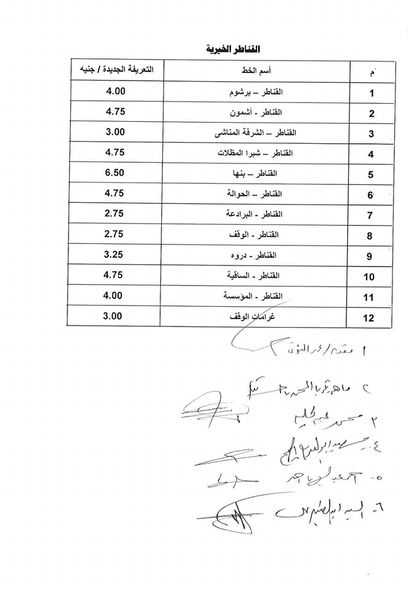 القناطر الخيرية
م أسم الخط التعريفة الجديدة / جنيه
1 القناطر – برشوم 4.00
2 القناطر - أشمون 4.75
3 القناطر – الشرفة المناشى 3.00
4 القناطر – شبرا المظلات 4.75
5 القناطر – بنها 6.50
6 القناطر - الحوالة 4.75
7 القناطر - البرادعة 2.75
8 القناطر - الوقف 2.75
9 القناطر - دروه 3.25
10 القناطر - الساقية 4.75
11 القناطر - المؤسسة 4.00
12 غرامات الوقف 3.00
١
٢ ماهر
٣ محمد
٤
٥ احمد
٦ السيد